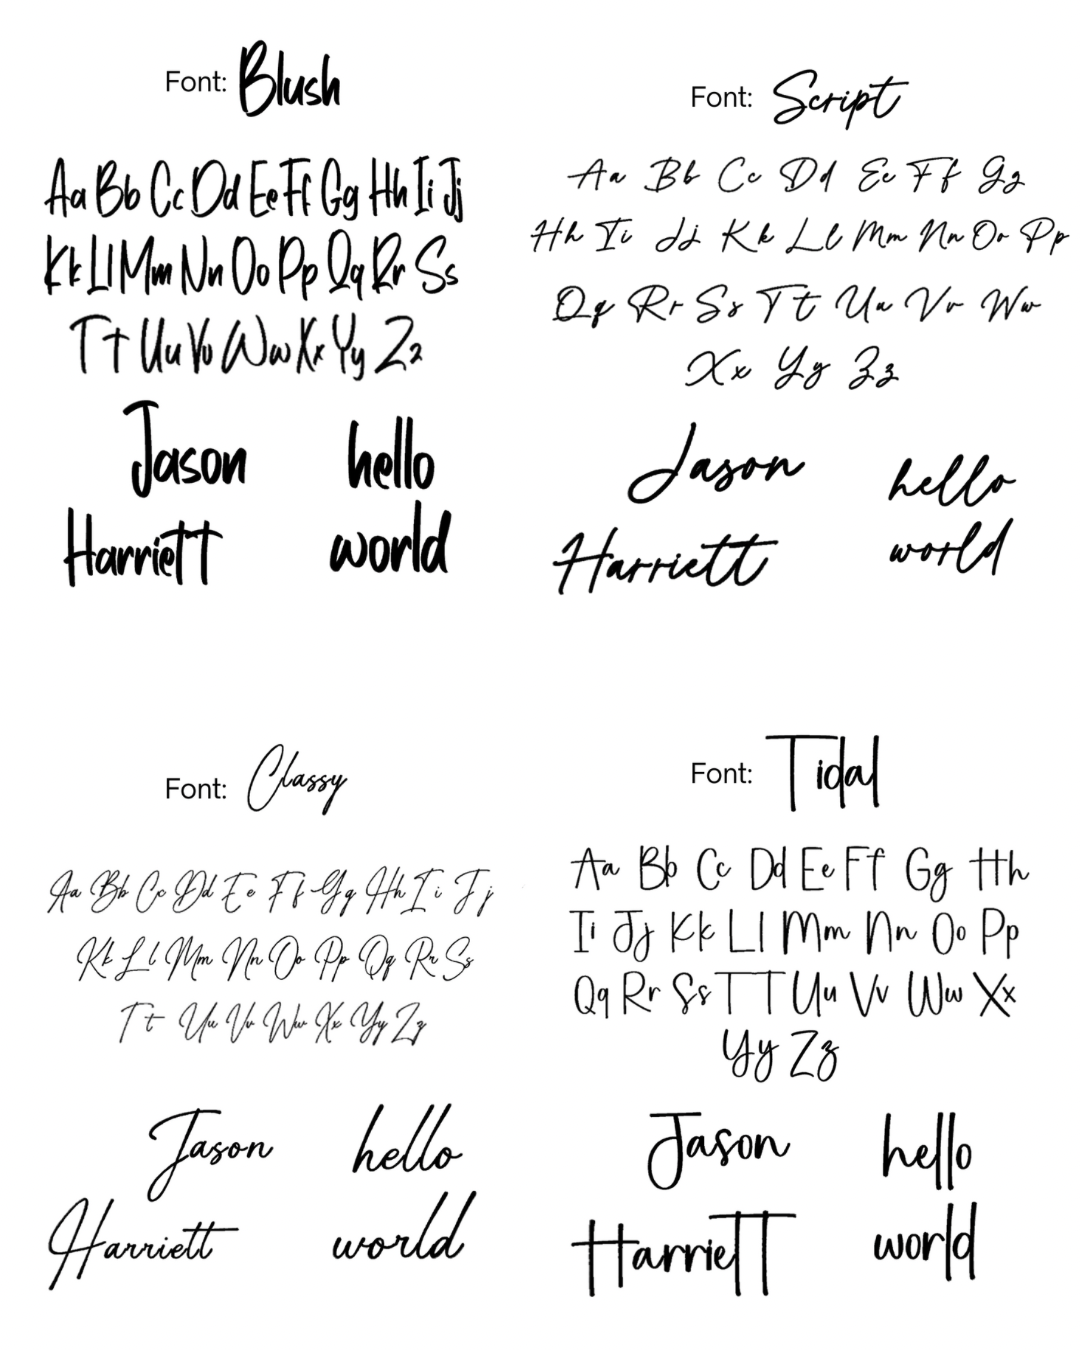 Font: Blush
Aa Bb Cc Dd Ee Ff Gg Hh Ii Jj
Kk Ll Mm Nn Oo Pp Qq Rr Ss
Tt Uu Vv Ww Xx Yy Zz
Jason
hello
Harriett
world
Font: Script
Aa Bb Cc Dd Ee Ff Gg
Hh Ii Jj Kk Ll Mm Nn Oo Pp
Qq Rr Ss Tt Uu Vv Ww
Xx Yy Zz
Jason
hello
Harriett
world
Font: Classy
Aa Bb Cc Dd Ee Ff Gg Hh Ii Jj
Kk Ll Mm Nn Oo Pp Qq Rr Ss
Tt Uu Vv Ww Xx Yy Zz
Jason
hello
Harriett
world
Font: Tidal
Aa Bb Cc Dd Ee Ff Gg Hh
Ii Jj Kk Ll Mm Nn Oo Pp
Qq Rr Ss TT Uu Vv Ww Xx
Yy Zz
Jason
hello
Harriett
world